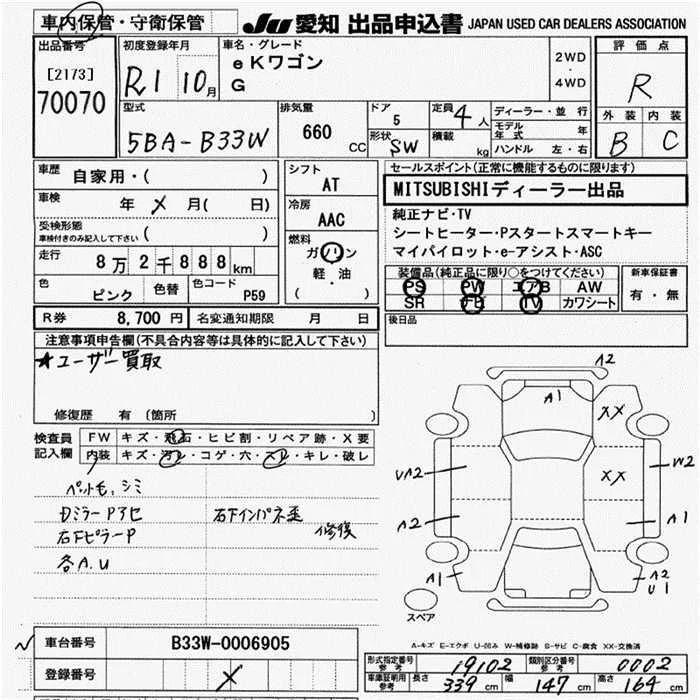 車内保管・守衛保管
JU 愛知 出品申込書 JAPAN USED CAR DEALERS ASSOCIATION
出品番号
[2173]
70070
初度登録年月
R1 10月
車名・グレード
eKワゴン
G
2WD
・
4WD
評価点
R
外装 内装
B C
型式
5BA-B33W
排気量
660 CC
ドア
5
形状
SW
定員 4人
積載 kg
ディーラー・並行
モデル年式 年
ハンドル 左・右
車歴
自家用・( )
車検
年 メ 月( 日)
受検形態
車検付きのみ記入して下さい ( )
走行
8万2千888km
色
ピンク
色替
色コード
P59
シフト
AT
冷房
AAC
燃料
ガソリン
軽・油
( )
セールスポイント(正常に機能するものに限ります)
MITSUBISHIディーラー出品
純正ナビ・TV
シートヒーター・Pスタートスマートキー
マイパイロット・e-アシスト・ASC
装備品(純正品に限り○をつけてください)
PS PW エアB AW
SR ナビ TV カワシート
新車保証書
有・無
R券 8,700円 名変通知期限 月 日
後日品
注意事項申告欄(不具合内容等は具体的に記入して下さい)
★ユーザー買取
修復歴 有 (箇所 )
検査員
記入欄
FW キズ・飛石・ヒビ割・リペア跡・X要
内装 キズ・汚レ・コゲ・穴・スレ・キレ・破レ
ペット毛、シミ
右下インパネ歪
修復
右下ピラーP
各A.U
A2
A1
XX
XX
UA2
W2
A2
A1
A1
A2
U1
スペア
A-キズ E-エクボ U-凹み W-補修跡 S-サビ C-腐食 XX-交換済
車台番号 B33W-0006905
登録番号 メ
形式指定番号
参考 19102
類別区分番号
参考 0002
車庫証明用
参考 長さ 339cm 幅 147cm 高さ 164cm